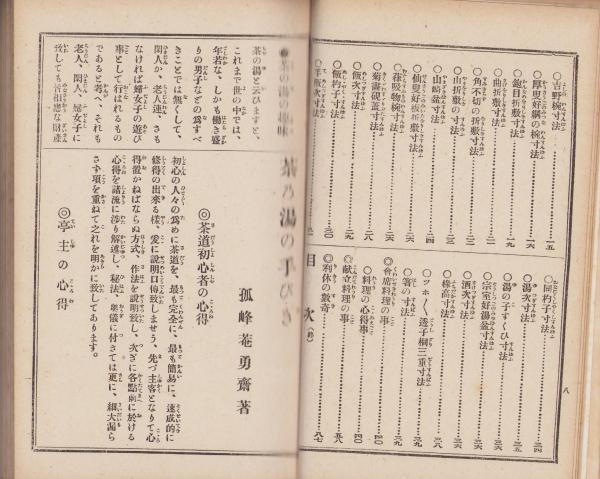 ○吉野椀寸法……………一五
○厚更好網の椀寸法……………一九
○鉋目折敷寸法……………
○曲折敷の寸法……………
○角不切の折敷寸法……………
○山折敷の寸法……………
○山崎盆寸法……………二四
○仙叟好松板折敷寸法……………
○蓋吸物椀寸法……………二六
○菊醤碗蓋寸法……………二八
○飯次寸法……………二九
○飯杓子寸法……………二九
○同杓子寸法……………三四
○湯次寸法……………三五
○湯の子すくひ寸法……………三六
○宗室好湯盆寸法……………三六
○酒次寸法……………三六
○樽高寸法……………三八
○ツホ〱透子桐三重寸法……………三九
○箸の寸法……………三九
◎會席料理の事……………四〇
○料理の心得事……………四〇
◎献立料理の事……………五八
◎利休の數寄……………八七
目次(終)
八
茶の湯の手びき
孤峰菴勇齋著
◎茶道初心者の心得
初心の人々の爲めに茶道を、最も完全に、最も簡易に、速成的に
修得の出來る樣、爰に說明口傳致しませう、先づ主客となりて心
得置かねばならぬ方式、作法を說明致し、次ぎに各點前に於ける
心得を諸流に涉り解述し、秘法、奧儀に付きては更に、細大漏ら
さず項を重ねて之れを明かに致してあります。
◎亭主の心得
茶の湯と云ひますと、
これまで世の中では、
年若な、しかも働き盛
りの男子などの爲すべ
きことでは無くして、
閑人か、老人連、さも
なければ婦女子の遊び
事として行はれるもの
であると考へ、それも
老人、閑人、婦女子に
致しても苦相應な財產